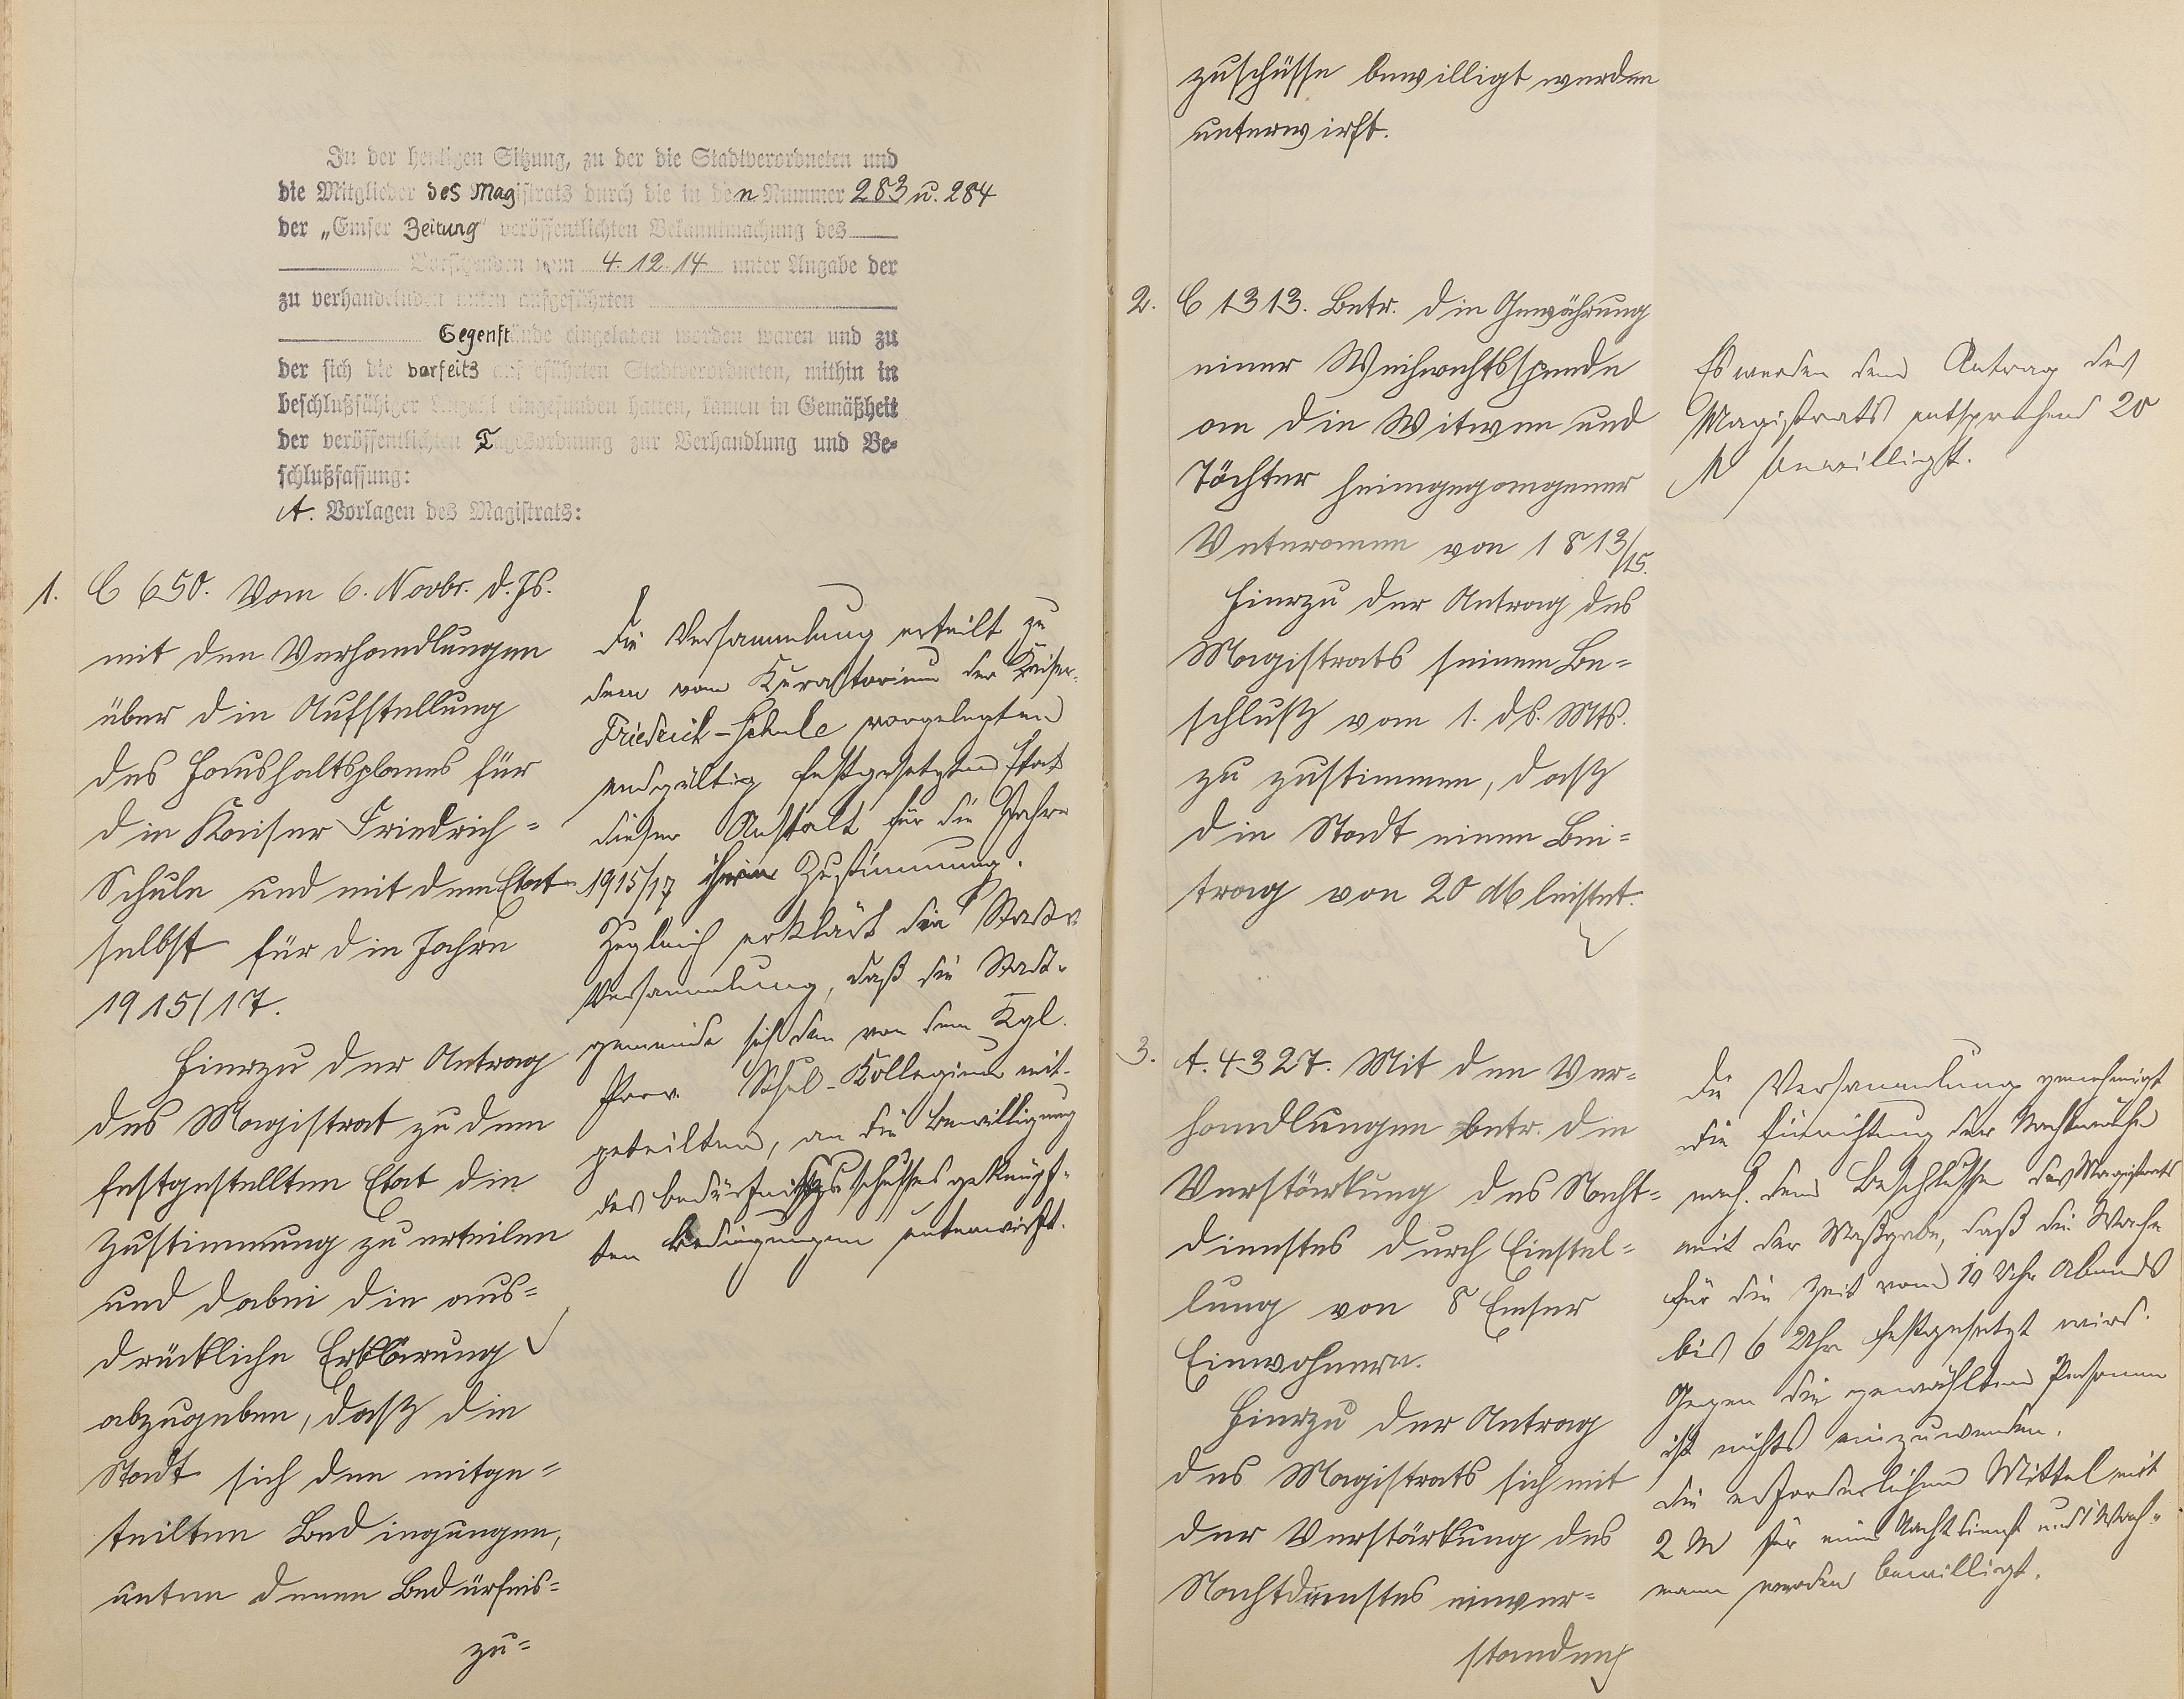 In der heutigen Sitzung, zu der die Stadtverordneten und
die Mitglieder des Magistrats durch die in den Nummer 283 u. 284
der „Emser Zeitung“ veröffentlichten Bekanntmachung des
Vorsitzenden vom 4.12.14 unter Angabe der
zu verhandelnden unten aufgeführten
Gegenstände eingeladen worden waren und zu
der sich die vorseits aufgeführten Stadtverordneten, mithin in
beschlußfähiger Anzahl eingefunden hatten, kamen in Gemäßheit
der veröffentlichten Tagesordnung zur Verhandlung und Be-
schlußfassung:
A. Vorlagen des Magistrats:
1. C 650. Vom 6. Novbr. d. Js.
mit den Verhandlungen
über die Aufstellung
des Haushaltsplanes für
die Kaiser Friedrich-
Schule und mit dem Etat
selbst für die Jahre
1915/17.
Hierzu der Antrag
des Magistrat zu dem
festgestellten Etat die
Zustimmung zu erteilen
und dabei die aus-
drückliche Erklärung
abzugeben, daß die
Stadt sich den mitge-
teilten Bedingungen,
unter denen Bedürfnis-
zu-
Die Versammlung erteilt zu
dem vom Kuratorium der Kaiser-
Friedrich-Schule vorgelegten
endgültig festgesetzten Etat
dieser Anstalt für die Jahre
1915/17 ihre Zustimmung.
Zugleich erklärt die Stadtv.
Versammlung, daß die Stadt-
gemeinde sich den von dem Kgl.
Prov. Schul-Kollegium mit-
geteilten, an die Bewilligung
des Bedürfniszuschusses geknüpf-
ten Bedingungen unterwirft.
zuschüsse bewilligt werden
unterwirft.
2. C 1313. Betr. die Gewährung
einer Weihnachtsspende
an die Witwen und
Töchter heimgegangener
Veteranen von 1813/15.
Hierzu der Antrag des
Magistrats seinem Be-
schluß vom 1. ds. Mts.
zu zustimmen, daß
die Stadt einen Bei-
trag von 20 M leistet.
Es werden dem Antrag des
Magistrats entsprechend 20
M bewilligt.
3. A. 4327. Mit den Ver-
handlungen betr. die
Verstärkung des Nacht-
dienstes durch Einstel-
lung von 8 Emser
Einwohnern.
Hierzu der Antrag
des Magistrats sich mit
der Verstärkung des
Nachtdienstes einver-
standen
Die Versammlung genehmigt
die Einrichtung der Nachtwache
nach dem Beschlusse des Magistrats
mit der Maßgabe, daß die Wache
für die Zeit von 10 Uhr Abends
bis 6 Uhr festgesetzt wird.
Gegen die gewählten Personen
ist nichts einzuwenden.
Die erforderlichen Mittel mit
2 M für eine Nachtdienst und Wach-
mann werden bewilligt.